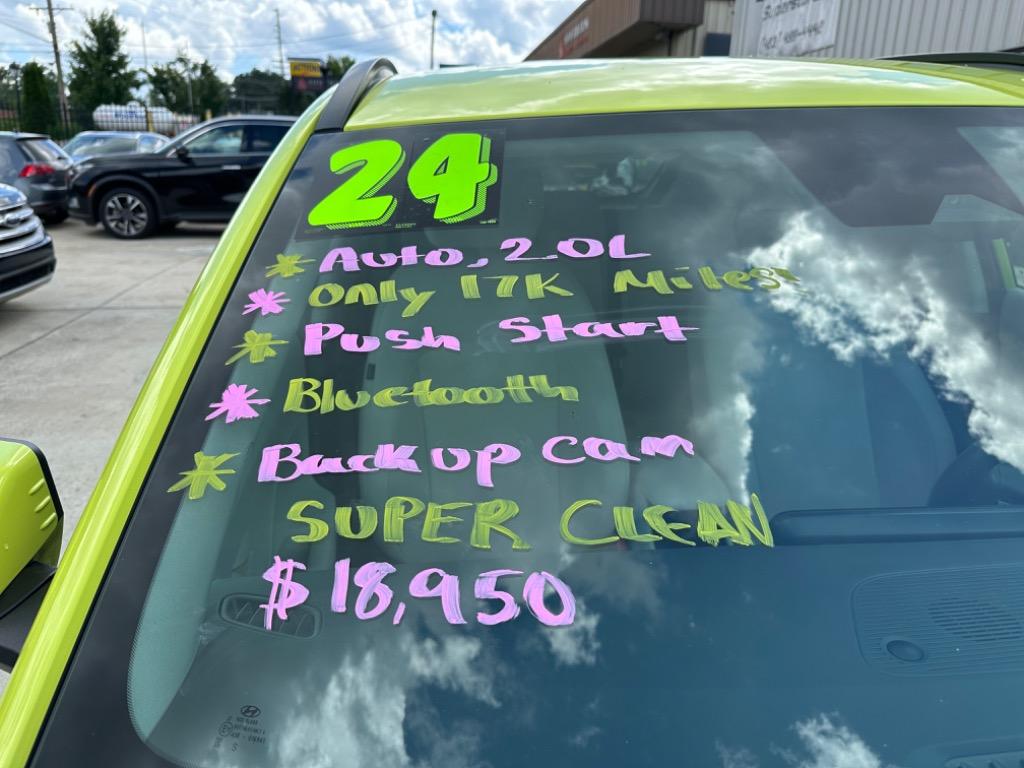 24
Auto, 2.0L
Only 17K Miles
Push Start
Bluetooth
Backup Cam
SUPER CLEAN
$18,950